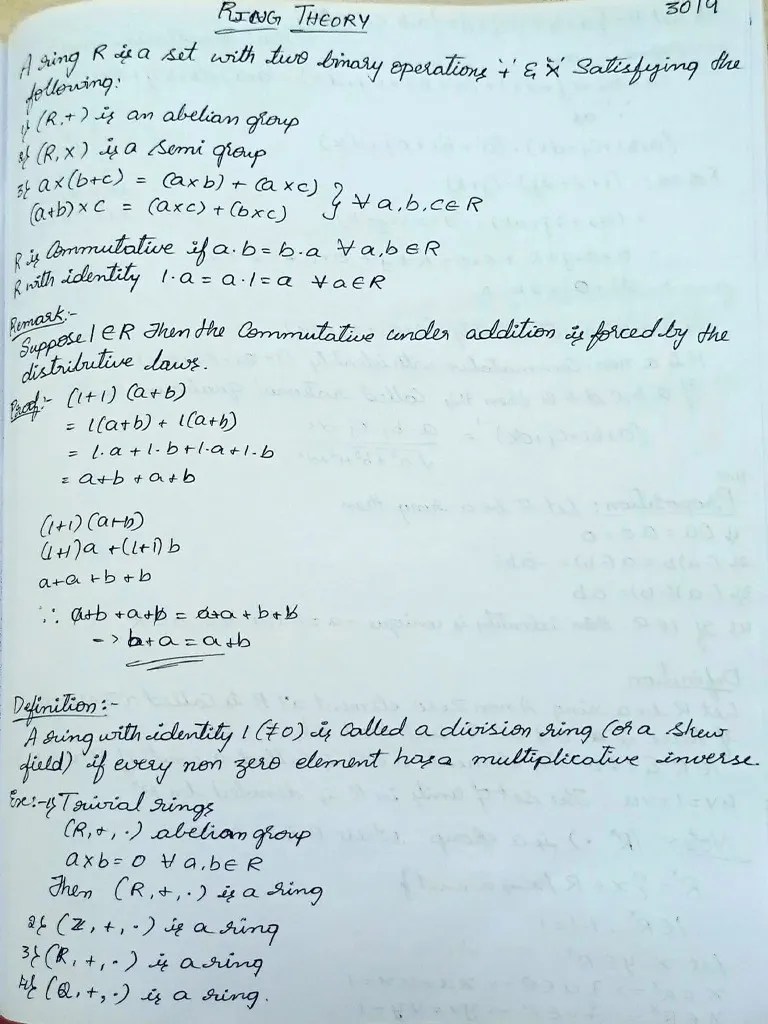 RING THEORY
30/9
A ring R is a set with two binary operations '+' & 'x' Satisfying the
following:
1} (R,+) is an abelian group
2} (R,x) is a semi group
3} a×(b+c) = (a×b) + (a×c)
(a+b)×c = (a×c) + (b×c) } ∀ a,b,c∈R
R is Commutative if a·b = b·a ∀ a,b∈R
R with identity 1·a = a·1 = a ∀a∈R
Remark:-
Suppose 1∈R Then the Commutative under addition is forced by the
distributive laws.
Proof:- (1+1) (a+b)
= 1(a+b) + 1(a+b)
= 1·a + 1·b + 1·a + 1·b
= a+b + a+b
(1+1) (a+b)
(1+1)a + (1+1)b
a+a + b+b
∴ a+b + a+b = a+a + b+b
-> b+a = a+b
Definition:-
A ring with identity 1 (≠0) is called a division ring (or a skew
field) if every non zero element has a multiplicative inverse.
Ex:- 1} Trivial rings
(R,+,·) abelian group
a×b = 0 ∀ a,b∈R
Then (R,+,·) is a ring
2} (Z,+,·) is a ring
3} (R,+,·) is a ring
4} (Q,+,·) is a ring.